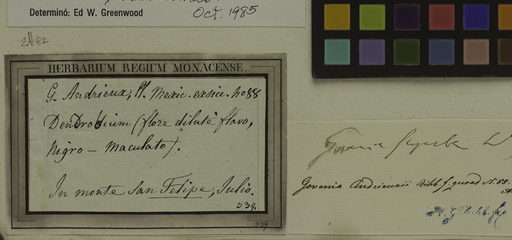 Determinó; Ed W. Greenwood
Oct. 1985
HERBARIUM REGIUM MONACENSE.
G. Andrieux, Pl. Mexic. exsicc. No 88
Dendrobium (flore dilute flavo,
nigro – maculato).
In monte San Felipe, Julio.
239.
239
Govenia superba
Govenia Andrieuxii Rchb. f. quoad N. 88.